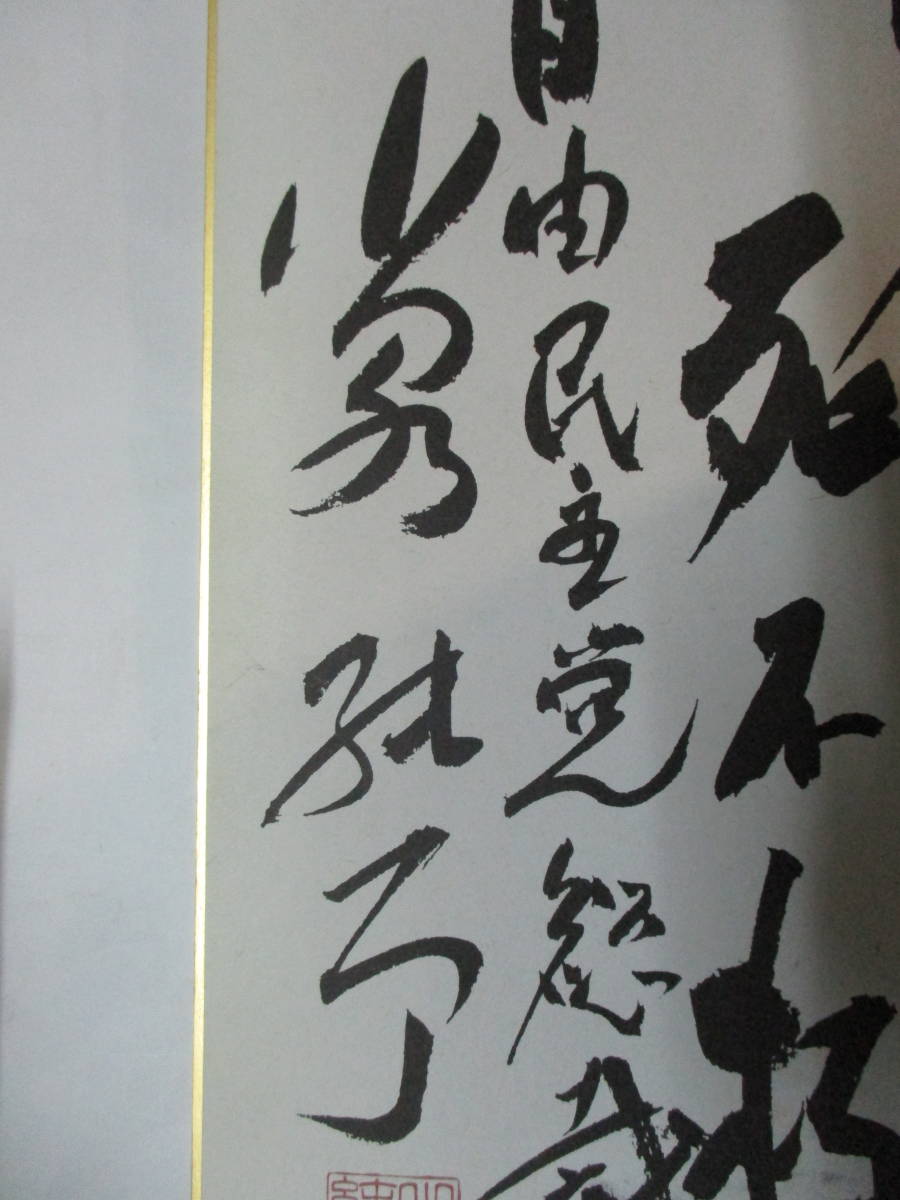 死不朽
自由民主党総裁
小泉純一郎